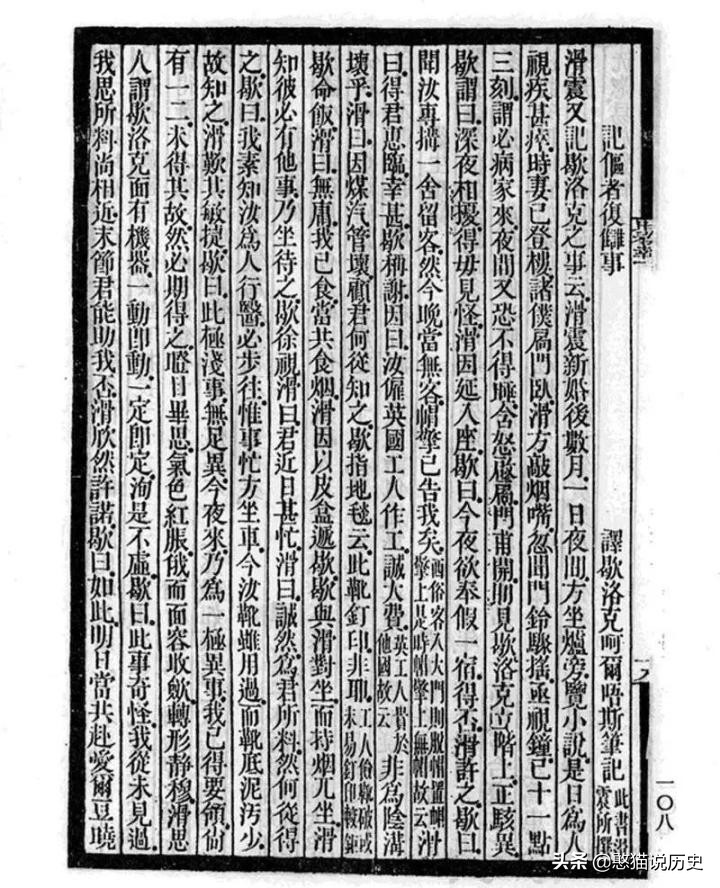 記傴者復讎事 譯歇洛克呵爾唔斯筆記 此書滑震所撰
滑震又記歇洛克之事云滑震新婚後數月一日夜間方坐爐旁覽小說是日為人
視疾甚瘁時妻已登樓諸僕扃門臥滑方敲烟嘴忽聞門鈴驟搖亟視鐘已十一點
三刻謂必病家來夜間又恐不得睡含怒啟扃門甫開則見歇洛克立階上正駭異
歇謂曰深夜相擾得毋見怪滑因延入座歇曰今夜欲奉假一宿得否滑許之歇曰
聞汝專搆一舍留客然今晚當無客帽擎已告我矣 西俗客入大門則脫帽置楜擎上是時帽擎上無帽故云 滑
曰得君惠臨幸甚歇稱謝因曰汝僱英國工人作工誠大費 英工人貴於他國故云 非為陰溝
壞乎滑曰因煤汽管壞顧君何從知之歇指地毯云此靴釘印非耶 工人儉靴破或未易釘印較鉅
歇命飯滑曰無庸我已食當共食烟滑因以皮盒遞歇歇與滑對坐而持烟兀坐滑
知彼必有他事乃坐待之歇徐視滑曰君近日甚忙滑曰誠然為君所料然何從得
之歇曰我素知汝為人行醫必步往惟事忙方坐車今汝靴雖用過而靴底泥汚少
故知之滑歎其敏捷歇曰此極淺事無足異今夜來乃為一極異事我已得要領尙
有一二未得其故然必期得之瞪目畢思氣色紅脹俄而面容收歛轉形靜穆滑思
人謂歇洛克面有機器一動卽動一定卽定洵是不虛歇曰此事奇怪我從未見過
我思所料尙相近末節君能助我否滑欣然許諾歇曰如此明日當共赴愛爾豆曉
一〇八
头条 @憨猫说历史